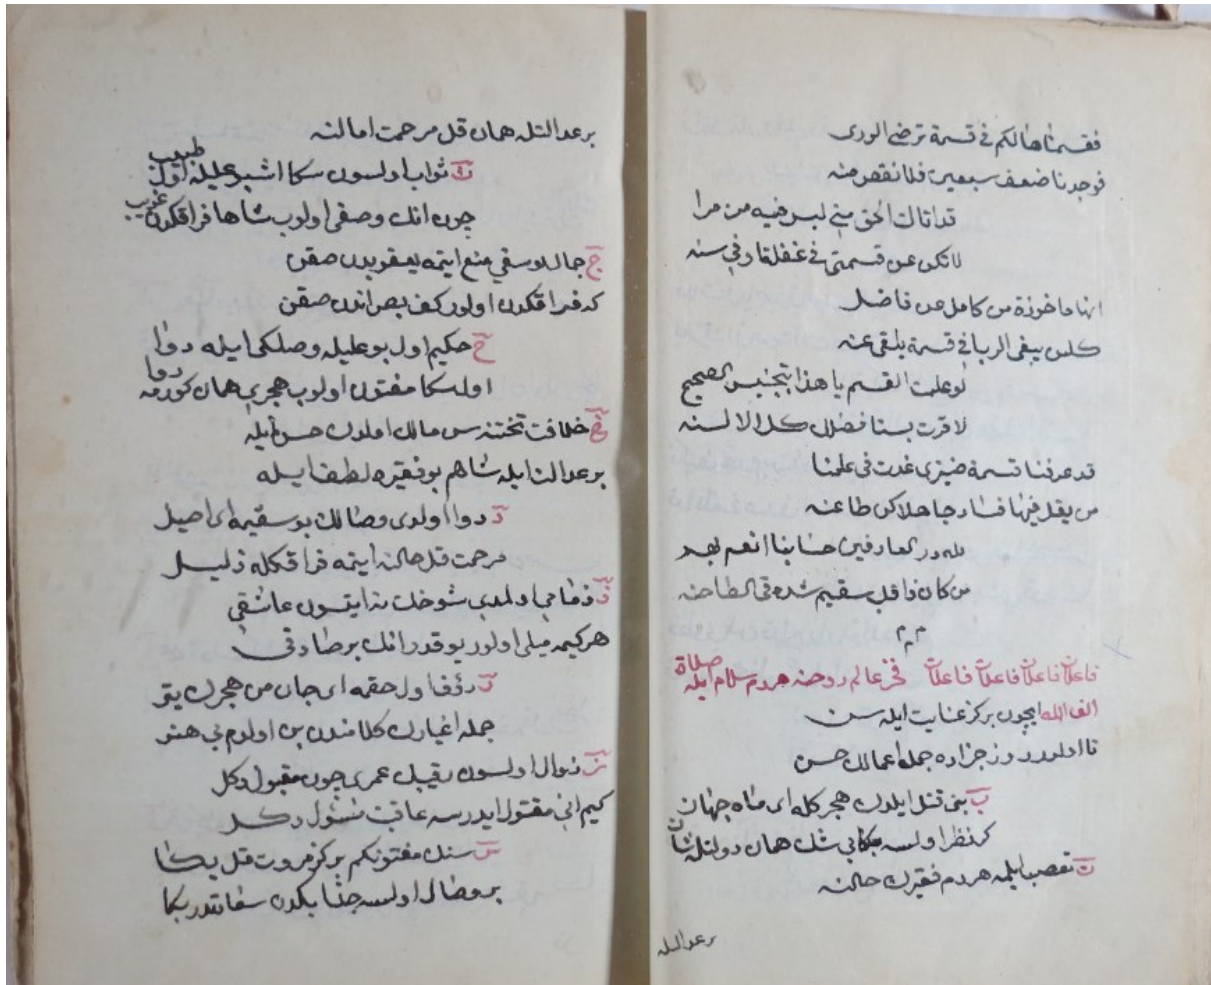 فقسمناها لكم في قسمة ترضي الورى
فوجدنا ضعف سبعين فلا نقص منه
قد اتاك الحق مني ليس فيه من مرا
لا تكن عن قسمتي في غفلة او في سنه
انها ماخوذة من كامل عن فاضل
كل من يبغي الربا في قسمة يلقى عنه
لو علمت القسم يا هذا بتجنيس الصحيح
لاقرت بسنا فضلك كل الالسنه
قد عرفنا قسمة ضيزى غدت في علمنا
من يقل فيها فساد جاهلا كن طاعنه
لله در العارفين حسابنا انعم بهم
من كان ذا قلب سقيم شده في الطاحنه
م م
فاعلاتن فاعلاتن فاعلاتن فاعلات فخر عالم روحنه هردم سلام ايله صلاة
الف الله ايچون بر كز عنايت ايله سن
تا اوله روز جزاده جمله اعمالك حسن
ب بني قتل ايلدك هجركله اى ماه جهان
كر نظر اولسه بكا بي شك همان دولتله شان
ت تعصب ايلمه هردم فقيرك حالنه
بر عدالتله
بر عدالتله همان قل مرحمت امالنه
ث ثواب اولسون سكا اشبو عليله اول طبيب
چون انك وصفى اولوب شاها فراقكدن غريب
ج جمال يوسفي منع ايتمه يعقوبدن صقن
كه فراقكدن اولور كف بصر اندن صقن
ح حكيم اول بو عليله وصلكى ايله دوا
اولسكا مفتون اولوب هجرى همان كورمه دوا
خ خلافت تختنه سن مالك اولدك حسن ايله
بر عدالت ايله شاهم بو فقيره لطف ايله
د دوا اولدى وصالك بو سقيمه اى اصيل
مرحمت قل حالنه ايتمه فراقكله ذليل
ذ اولدى شو خلق نه ايتسون عاشقى
هر كيمه ميلى اولور يوقدر انك بر صادقى
ر رؤف اول حقمه اى جان من هجرك يتر
جمله اغيارك كلامندن بن اولدم بي هنر
ز زوال اولسون رقيبك عمرى چون مقبول دكل
كيم انى مقتول ايدرسه عاقبت مسئول دكل
س سنك مفتونكم بر كز مروت قل بكا
بر وصال اولسه بكدن سفاتدر بكا